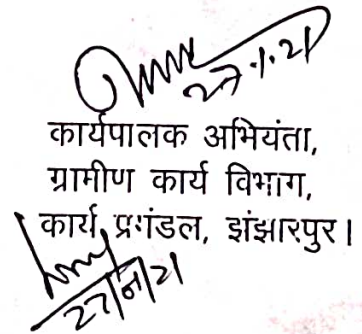 27.1.21
कार्यपालक अभियंता,
ग्रामीण कार्य विभाग,
कार्य प्रमंडल, झंझारपुर।
27/1/21